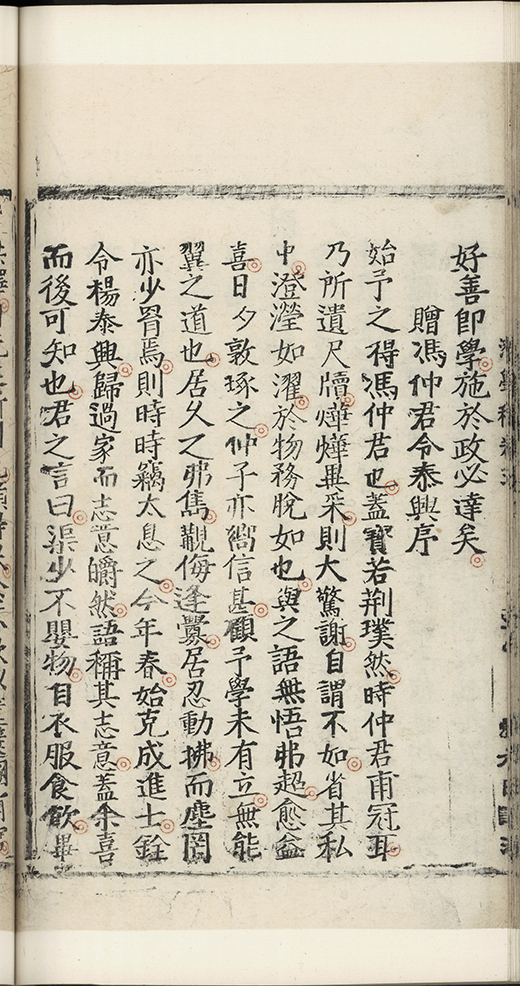 好善即學施於政必達矣
贈馮仲君令泰興序
始予之得馮仲君也蓋寶若荆璞然時仲君甫冠耳
乃所遺尺牘燁燁異采則大驚謝自謂不如省其私
中澄瀅如濯於物務脫如也與之語無悟弗超愈益
喜日夕敦琢之仲子亦嚮信甚顧予學未有立無能
翼之道也居久之弗雋觀侮逢釁居忍動拂而塵罔
亦少胥焉則時時竊太息之今年春始克成進士銓
令楊泰興歸過家而志意皭然語稱其志意蓋余喜
而後可知也君之言曰渠少不嬰物自衣服食飲畢